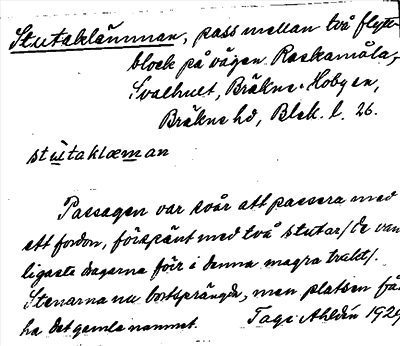 Stutaklämman, pass mellan två flytt-
block på vägen Raskamåla,-
Svalhult, Bräkne-Hobyen,
Bräkne hd, Blek. l. 26.
stutaklæman
Passagen var svår att passera med
ett fordon, förspänt med två stutar/de van
ligaste dragarna förr i denna magra trakt/.
Stenarna nu bortsprängda, men platsen få
ha det gamla namnet. Tage Ahldén 192